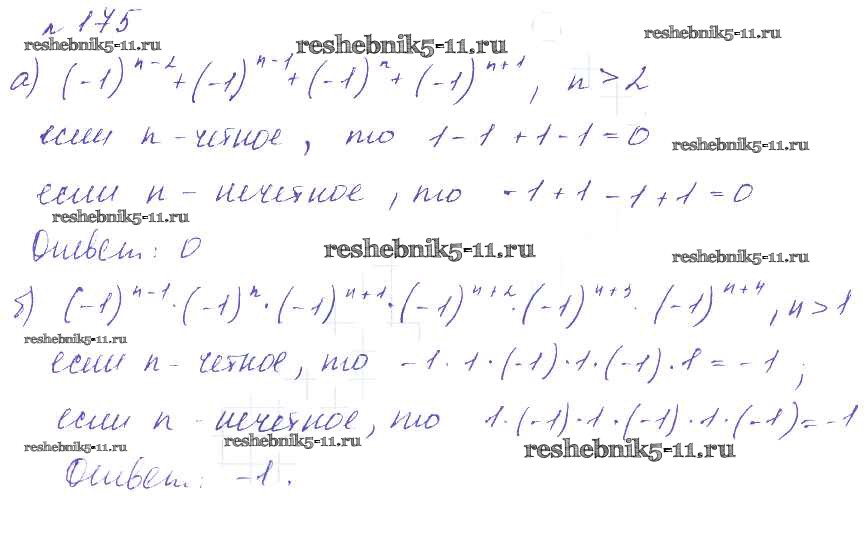 n 175
reshebnik5-11.ru reshebnik5-11.ru reshebnik5-11.ru
а) (-1)^{n-2} + (-1)^{n-1} + (-1)^{n} + (-1)^{n+1}, n > 2
если n - четное, то 1 - 1 + 1 - 1 = 0
reshebnik5-11.ru
если n - нечетное, то -1 + 1 - 1 + 1 = 0
reshebnik5-11.ru
Ответ: 0 reshebnik5-11.ru reshebnik5-11.ru
б) (-1)^{n-1} · (-1)^{n} · (-1)^{n+1} · (-1)^{n+2} · (-1)^{n+3} · (-1)^{n+4}, n > 1
reshebnik5-11.ru
если n - четное, то -1 · 1 · (-1) · 1 · (-1) · 1 = -1;
если n - нечетное, то 1 · (-1) · 1 · (-1) · 1 · (-1) = -1
reshebnik5-11.ru reshebnik5-11.ru reshebnik5-11.ru
Ответ: -1.